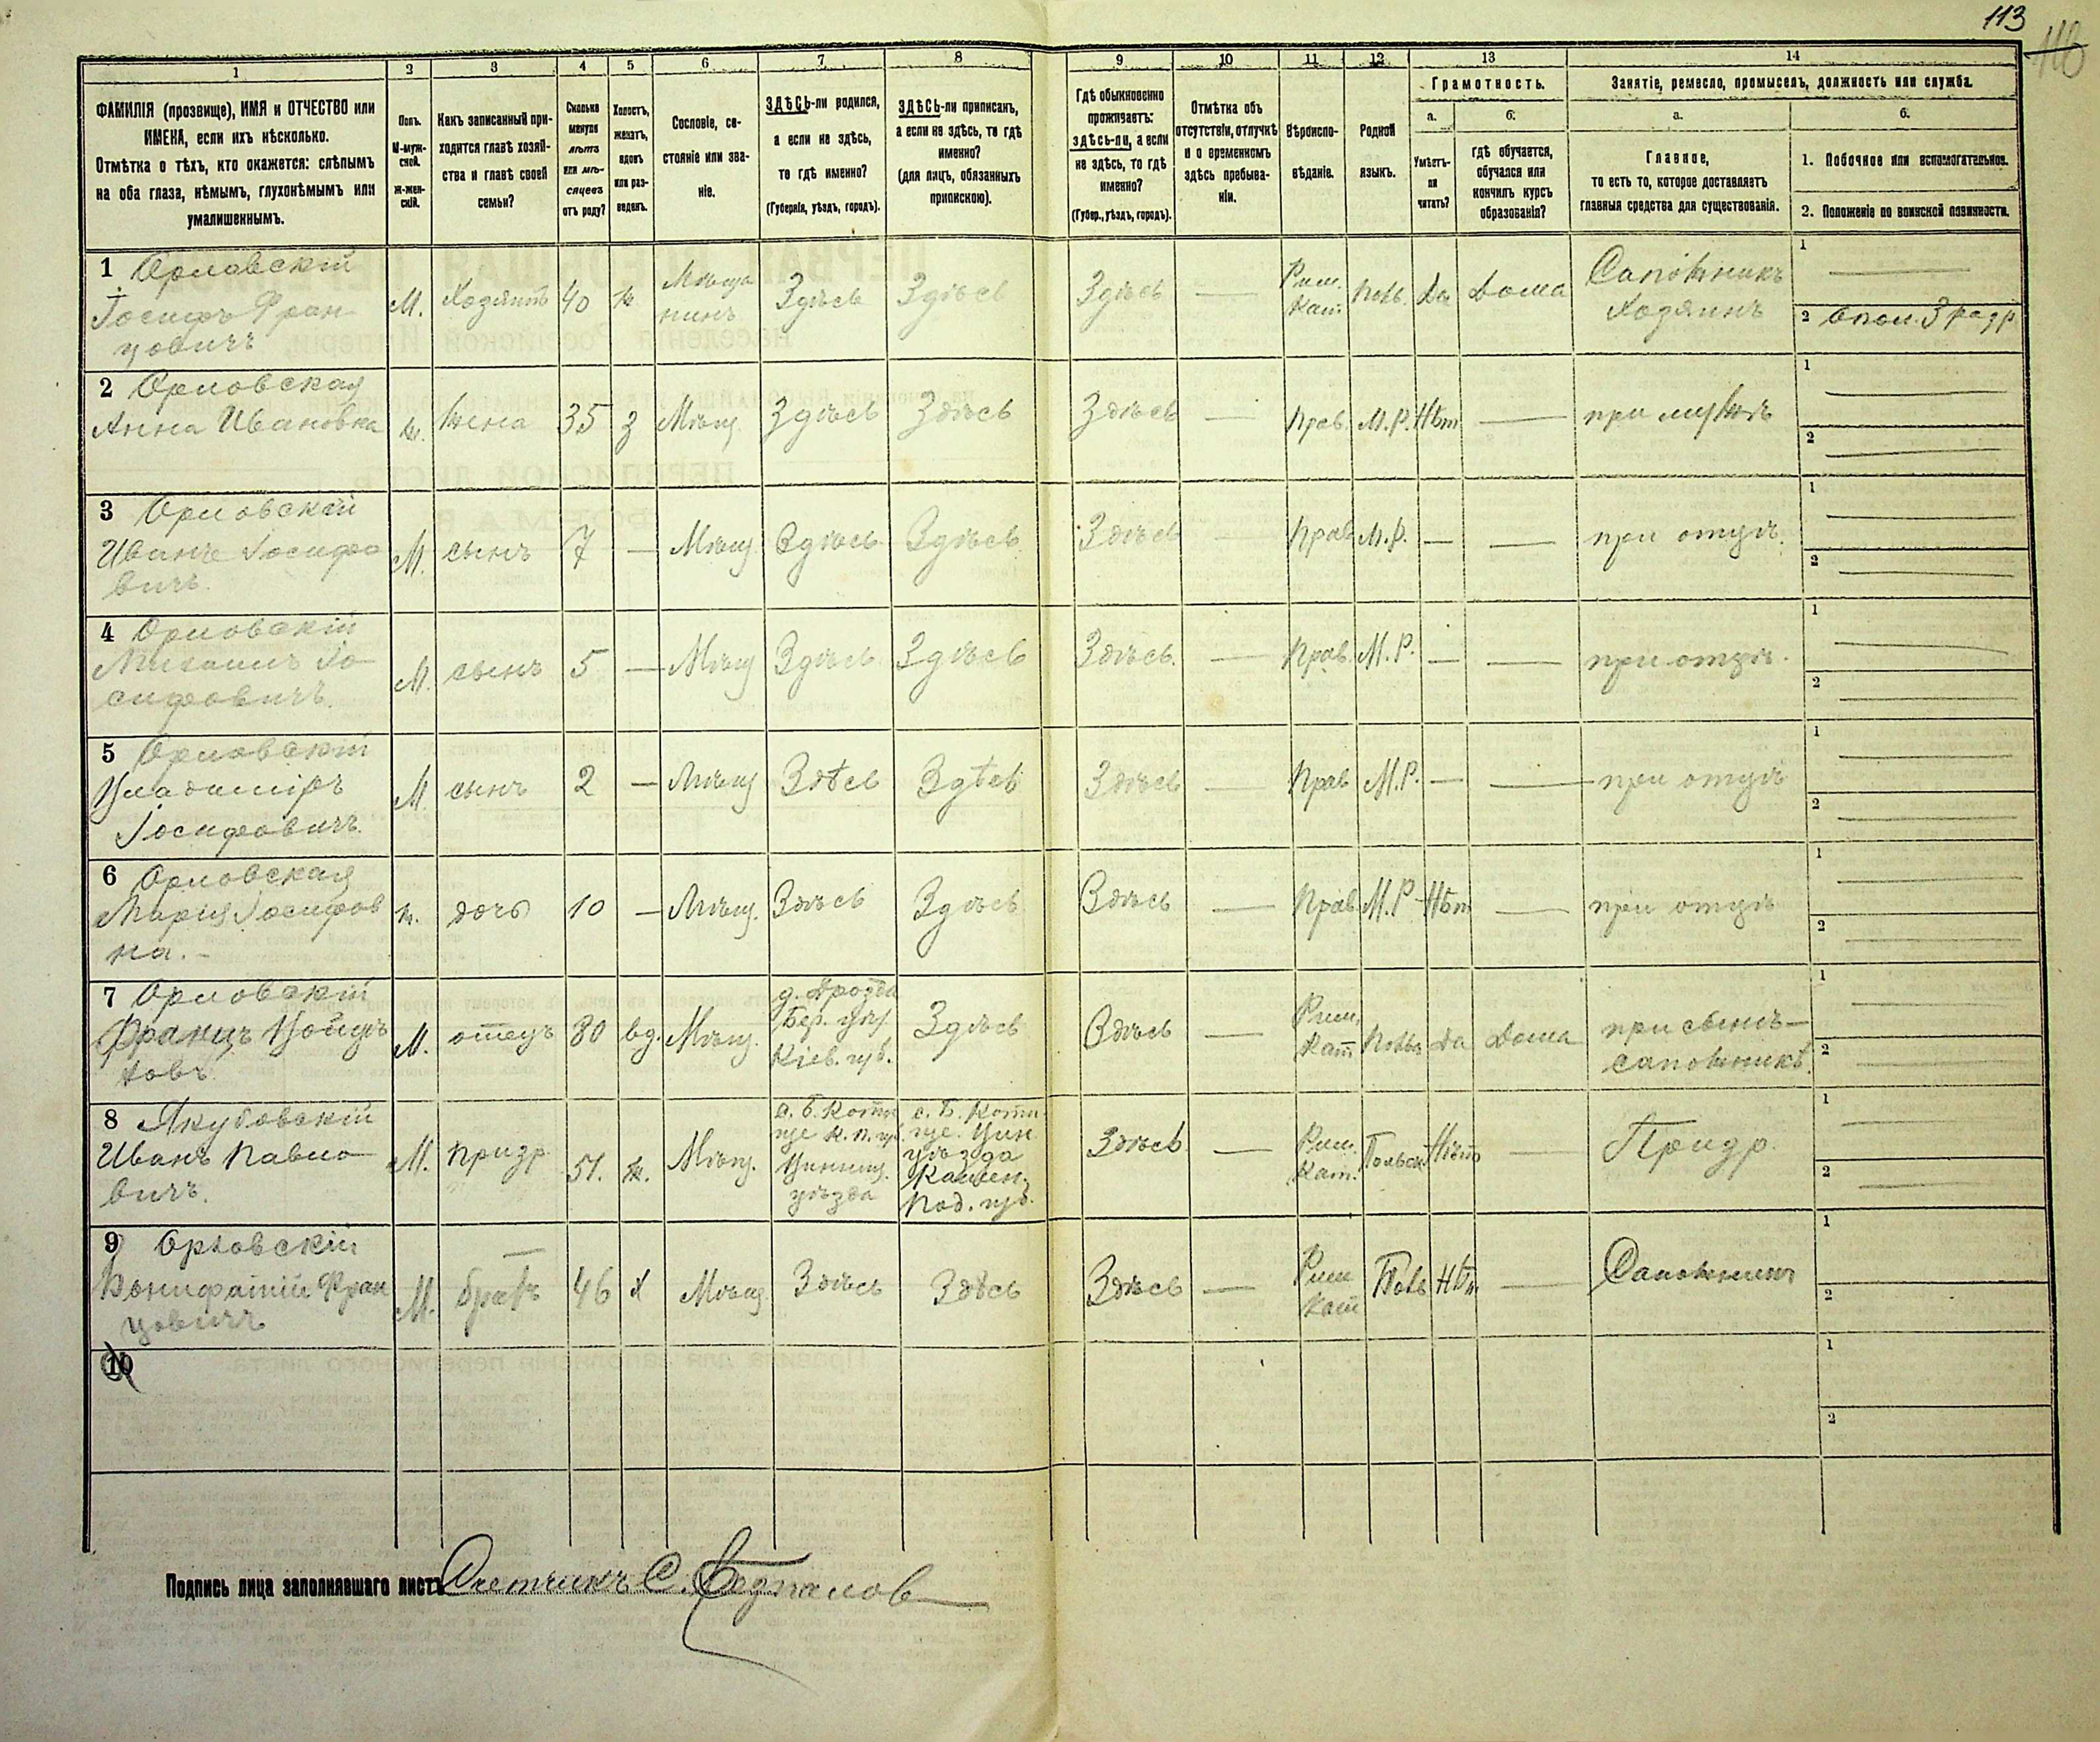 113
110
1
2
3
4
5
6
7
8
9
10
11
12
13
14
ФАМИЛІЯ (прозвище), ИМЯ и ОТЧЕСТВО или
ИМЕНА, если ихъ нѣсколько.
Отмѣтка о тѣхъ, кто окажется: слѣпымъ
на оба глаза, нѣмымъ, глухонѣмымъ или
умалишеннымъ.
Полъ.
М-муж-
ской.
Ж-жен-
скій.
Какъ записанный при-
ходится главѣ хозяй-
ства и главѣ своей
семьи?
Сколько
минуло
лѣтъ
или мѣ-
сяцевъ
отъ роду?
Холостъ,
женатъ,
вдовъ
или раз-
веденъ.
Сословіе, со-
стояніе или зва-
ніе.
ЗДѢСЬ-ли родился,
а если не здѣсь,
то гдѣ именно?
(Губернія, уѣздъ, городъ).
ЗДѢСЬ-ли приписанъ,
а если не здѣсь, то гдѣ
именно?
(для лицъ, обязанныхъ
припискою).
Гдѣ обыкновенно
проживаетъ:
здѣсь-ли, а если
не здѣсь, то гдѣ
именно?
(Губер., уѣздъ, городъ).
Отмѣтка объ
отсутствіи, отлучкѣ
и о временномъ
здѣсь пребыва-
ніи.
Вѣроиспо-
вѣданіе.
Родной
языкъ.
Грамотность.
а.
б.
Умѣетъ-
ли
читать?
гдѣ обучается,
обучался или
кончилъ курсъ
образованія?
Занятіе, ремесло, промыселъ, должность или служба.
а.
б.
Главное,
то есть то, которое доставляетъ
главныя средства для существованія.
1. Побочное или вспомогательное.
2. Положеніе по воинской повинности.
1 Орловскій
Іосифъ Фран
цовичъ
М. Хозяинъ 40 ж Мѣща
нинъ Здѣсь Здѣсь Здѣсь — Рим.
Кат. Поль. Да Дома Сапожникъ
Хозяинъ
1 —
2 Опол. 3 разр
2 Орловская
Анна Ивановна ж. жена 35 з Мѣщ. Здѣсь Здѣсь Здѣсь — Прав. М.Р. Нѣт — при мужѣ
1 —
2 —
3 Орловскій
Иванъ Іосифо
вичъ.
М. сынъ 7 — Мѣщ. Здѣсь Здѣсь Здѣсь — Прав М.Р. — — при отцѣ.
1 —
2 —
4 Орловскій
Михаилъ Іо
сифовичъ.
М. сынъ 5 — Мѣщ Здѣсь Здѣсь Здѣсь. — Прав. М.Р. — — при отцѣ.
1 —
2 —
5 Орловскій
Владиміръ
Іосифовичъ.
М. сынъ 2 — Мѣщ Здѣсь Здѣсь Здѣсь — Прав М.Р. — — при отцѣ
1 —
2 —
6 Орловская
Марія Іосифов
на. -
ж. дочь 10 — Мѣщ. Здѣсь Здѣсь Здѣсь — Прав М.Р Нѣт — при отцѣ
1 —
2 —
7 Орловскій
Францъ
М. отецъ 80 вд. Мѣщ. д. Дрозда
Бер. уѣз.
Кіев. губ. Здѣсь Здѣсь — Рим.
Кат Поль да Дома при сынѣ—
сапожникѣ.
1 —
2 —
8 Якубовскій
Иванъ Павло
вичъ.
М. 51. ж. Мѣщ. уѣзда
с. Б.
уѣзда
Камен.
Под. губ.
Здѣсь — Рим.
Кат. Польск Нѣт —
1 —
2 —
9 Орловскій
Бонифатій Фран
цовичъ
М. братъ 46 х Мѣщ. Здѣсь Здѣсь Здѣсь — Рим
Кат Поль Нѣт. — Сапожникъ
1
2
10
1
2
Подпись лица заполнявшаго листъ Счетчикъ С.